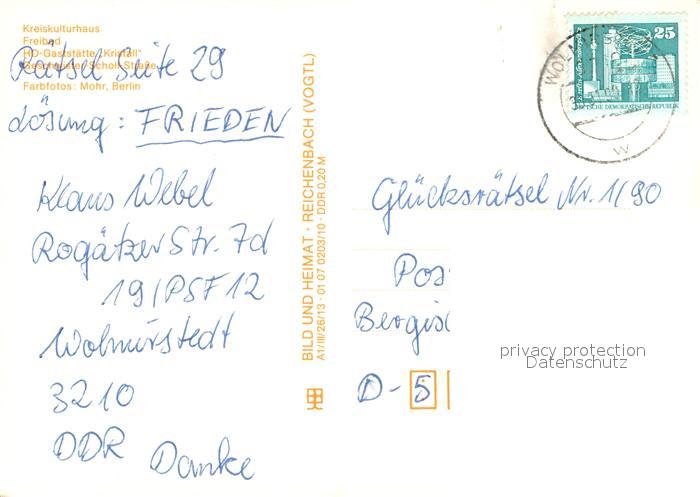 Kreiskulturhaus
Freibad
HO-Gaststätte "Kristall"
Geschwister-Scholl-Straße
Farbfotos: Mohr, Berlin
Rätsel Seite 29
Lösung: FRIEDEN
Klaus Webel
Rogätzer Str. 7d
19/PSF 12
Wolmirstedt
3210
DDR
Danke
BILD UND HEIMAT · REICHENBACH (VOGTL)
A1/III/26/13 · 01 07 0203/10 · DDR 0,20 M
25
DEUTSCHE DEMOKRATISCHE REPUBLIK
W
Glücksrätsel Nr. 1/90
Pos
Bergis
D-5
privacy protection
Datenschutz